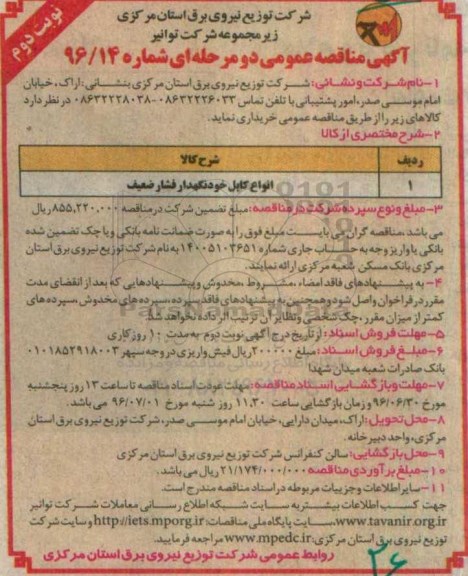 نوبت دوم
شرکت توزیع نیروی برق استان مرکزی
زیر مجموعه شرکت توانیر
آگهی مناقصه عمومی دو مرحله ای شماره ۹۶/۱۴
۱-نام شرکت و نشانی: شرکت توزیع نیروی برق استان مرکزی بنشانی: اراک، خیابان
امام موسی صدر، امور پشتیبانی با تلفن تماس ۰۸۶۳۲۲۲۶۰۳۳-۰۸۶۳۲۲۲۸۰۳۸ در نظر دارد
کالاهای زیر را از طریق مناقصه عمومی خریداری نماید.
۲-شرح مختصری از کالا
ردیف شرح کالا
۱ انواع کابل خودنگهدار فشار ضعیف
۳-مبلغ و نوع سپرده شرکت در مناقصه: مبلغ تضمین شرکت در مناقصه ۸۵۵,۲۲۰,۰۰۰ ریال
می باشد، مناقصه گران می بایست مبلغ فوق را به صورت ضمانت نامه بانکی و یا چک تضمین شده
بانکی یا واریز وجه به حساب جاری شماره ۱۴۰۰۵۱۰۳۶۵۱ به نام شرکت توزیع نیروی برق استان
مرکزی بانک مسکن شعبه مرکزی ارائه نمایند.
۴- به پیشنهادهای فاقد امضاء، مشروط، مخدوش و پیشنهادهایی که بعد از انقضای مدت
مقرر در فراخوان واصل شود و همچنین به پیشنهادهای فاقد سپرده، سپرده های مخدوش، سپرده های
کمتر از میزان مقرر، چک شخصی و نظایر آن ترتیب اثر داده نخواهد شد.
۵-مهلت فروش اسناد: از تاریخ درج آگهی نوبت دوم به مدت ۱۰ روز کاری
۶-مبلغ فروش اسناد: مبلغ ۲۰۰۰۰۰ ریال فیش واریزی در وجه سپهر ۰۱۰۱۸۵۲۹۱۸۰۰۳
بانک صادرات شعبه میدان شهدا
۷-مهلت و بازگشایی اسناد مناقصه: مهلت عودت اسناد مناقصه تا ساعت ۱۳ روز پنجشنبه
مورخ ۹۶/۰۶/۳۰ و زمان بازگشایی ساعت ۱۱.۳۰ روز شنبه مورخ ۹۶/۰۷/۰۱ می باشد.
۸-محل تحویل: اراک، میدان دارایی، خیابان امام موسی صدر، شرکت توزیع نیروی برق استان
مرکزی، واحد دبیرخانه.
۹-محل بازگشایی: سالن کنفرانس شرکت توزیع نیروی برق استان مرکزی
۱۰-مبلغ برآوردی مناقصه ۲۱/۱۷۴/۰۰۰/۰۰۰ ریال می باشد.
۱۱-سایر اطلاعات و جزییات مربوطه در اسناد مناقصه مندرج است.
جهت کسب اطلاعات بیشتر به سایت شبکه اطلاع رسانی معاملات شرکت توانیر
www.tavanir.org.ir، سایت پایگاه ملی مناقصات: http://iets.mporg.ir و سایت شرکت
توزیع نیروی برق استان مرکزی: www.mpedc.ir مراجعه فرمایید.
روابط عمومی شرکت توزیع نیروی برق استان مرکزی
۲۶